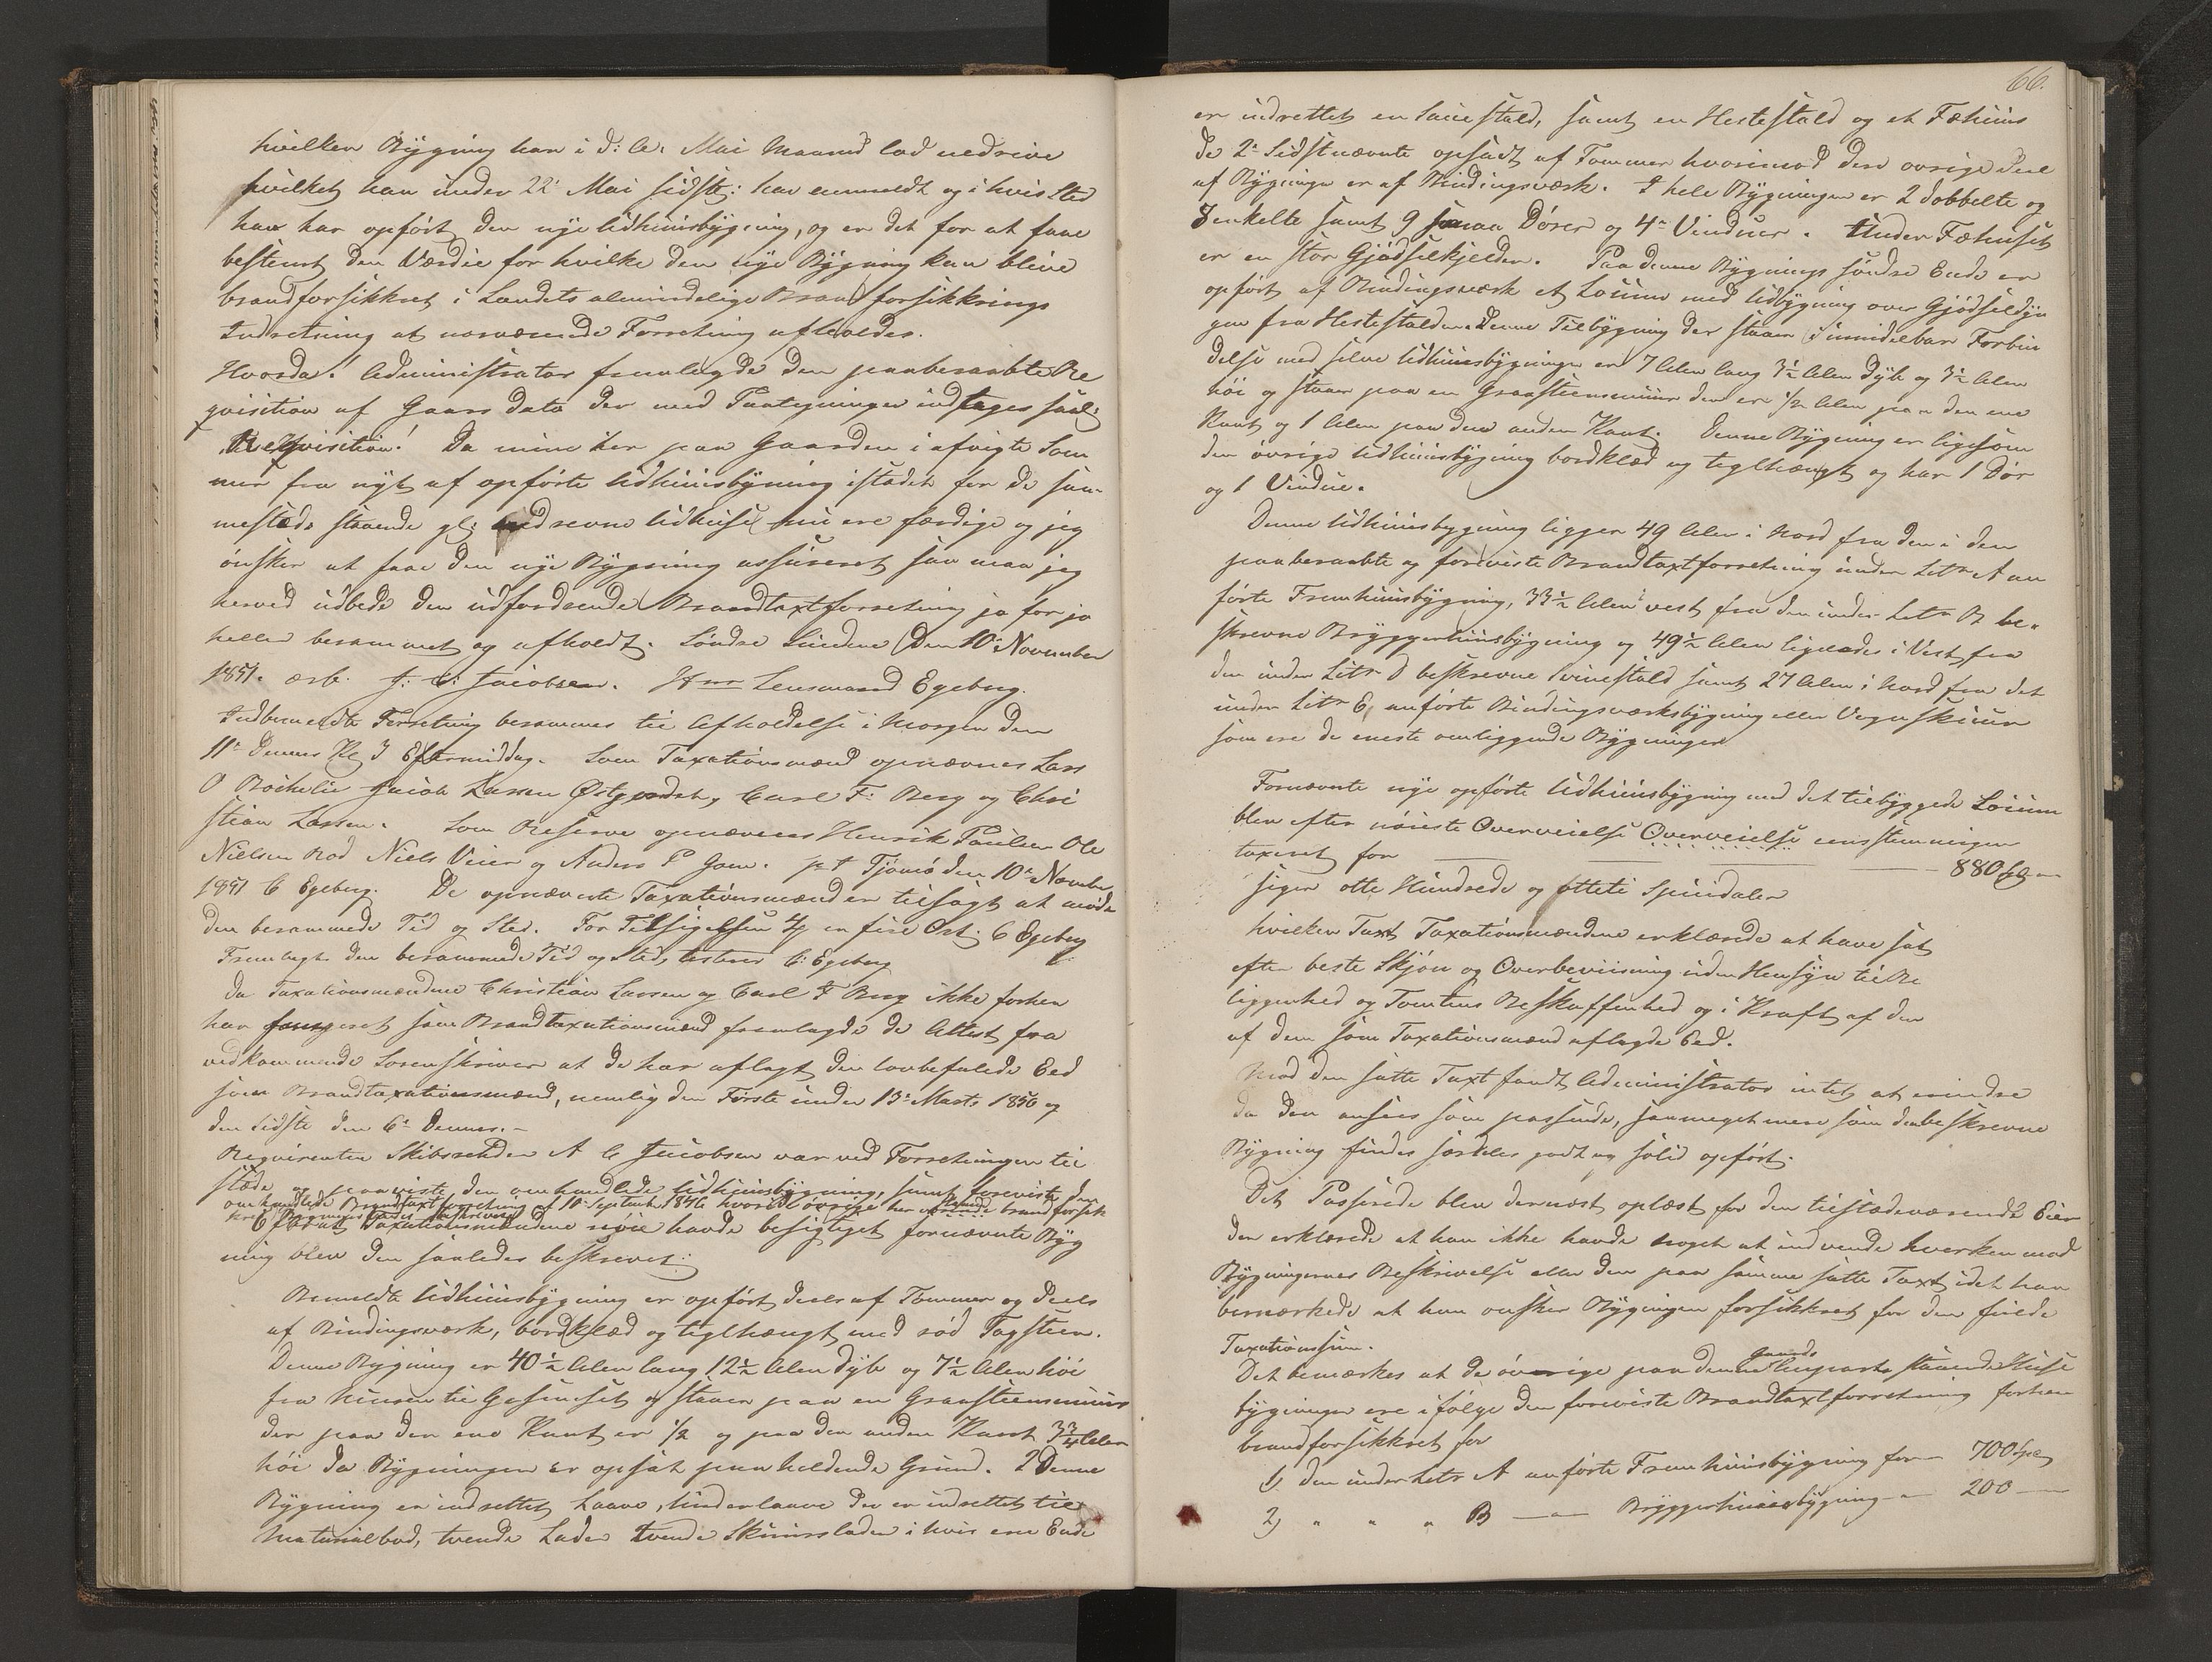 hvilken Bygning han i d: A. Mai Maaned lod nedrive
hvilket han under 22' Mai sidstl: har anmeldt og i hvis Sted
han har opført den nye Udhuusbygning, og er det for at faae
bestemt den Værdie for hvilke den nye Bygning kan blive
brandforsikkret i Landets almindelige Brandforsikkrings
Indretning at nærværende Forretning afholdes.
Hvorda! Administrator fremlagde den paaberaabte Re
qvisition af Gaars Dato der med Paategninger indtages saal:
Reqvisition! Da min her paa Gaarden i afvigte Som
mer fra nyt af opførte Udhuusbygning istædet for de sam-
mesteds staaende gl: nedrevne Udhuse nu ere færdige og jeg
ønsker at faae den nye Bygning assureret saa maa jeg
herved udbede den udfordrende Brandtaxtforretning jo før jo
heller berammet og afholdt. Søndre Sundene den 10' November
1851. ærb. A: C: Jacobsen. Hrr Lensmand Egeberg.
Indbemeldte Forretning berammes til Afholdelse i Morgen den
11te Dennes Kl 3 Eftermiddag. Som Taxationsmænd opnævnes Lars
O Bøikelie Jacob Larsen Østgaardet, Carl F: Berg og Chri
stian Larsen. Som Reserve opnævnes Henrik Paulsen Ole
Nielsen Rød Niels Veier og Anders P Goen. pt Tjømø den 10' Novembr
1851 C Egeberg. De opnævnte Taxationsmænd er tilsagt at møde
den berammede Tid og Sted. For Tilsigelsen 4 er fire Ort. C Egeberg
Fremlagt den berammede Tid og Sted, testerer C: Egeberg
Da Taxationsmændene Christian Larsen og Carl F Berg ikke forhen
har fungeret som Brandtaxationsmænd fremlagde de Attest fra
vedkommende Sorenskriver at de har aflagt den lovbefalede Eed
som Brandtaxationsmænd, nemlig den Første under 13' Marts 1850 og
den Sidste den 6te Dennes.-
Reqvirenten Skibsrheder A C Jacobsen var ved Forretningen til
stæde og paaviste den omhandlede Udhuusbygning, samt foreviste den
omhandlede Brandtaxtforretning af 10' September 1846 hvorved øvrige her værende brandforsik
krede Bygninger findes beskrevne
Efterat Taxationsmændene nøie havde besigtiget fornævnte Byg
ning blev den saaledes beskrevet:
Bemeldte Udhuusbygning er opført deels af Tømmer og deels
af Bindingsværk, bordklæd og teglhængt med rød Tagsteen.
Denne Bygning er 40 1/2 Alen lang 12 1/2 Alen dyb og 7 1/2 Alen høi
fra Muren til Gesimset og staaer paa en Graasteensmuur
der paa den ene Kant er 1/2 og paa den anden Kant 3 3/4 Alen
høi da Bygningen er opsat paa heldende Grund. I Denne
Bygning er indrettet Laave, Underlaave der er indrettet til
Materialbod, tvende Lader tvende Skuurslader i hvis ene Ende
66.
er indrettet en Sauestald, samt en Hestestald og et Fæhuus
de 2de Sidstnævnte opsadt af Tømmer hvorimod den øvrige Deel
af Bygningen er af Bindingsværk. I hele Bygningen er 2 dobbelte og
3 enkelte samt 9 smaa Døre og 4re Vinduer. Under Fæhuset
er en stor Gjødselkjelder. Paa denne Bygnings søndre Ende er
opført af Bindingsværk et Locum med Udbygning over Gjødseldyn
gen fra Hestestalden. Denne Tilbygning der staaer i umiddelbar Forbin
delse med selve Udhuusbygningen er 7 Alen lang 3 1/2 Alen dyb og 3 1/2 Alen
høi og staaer paa en Graasteensmuur der er 1/2 Alen paa den ene
Kant og 1 Alen paa den anden Kant. Denne Bygning er ligesom
den øvrige Udhuusbygning bordklæd og teglhængt og har 1 Dør
og 1 Vindue.
Denne Udhuusbygning ligger 49 Alen i Nord fra den i den
paaberaabte og foreviste Brandtaxtforretning under Litr A an
førte Fremhuusbygning, 33 1/2 Alen i vest fra den under Litr B be-
skrevne Bryggerhuusbygning og 49 1/2 Alen ligeledes i Vest fra
den under Litr D beskrevne Svinestald samt 27 Alen i Nord fra det
under Litr E, anførte Bindingsværksbygning eller Vognskuur
som ere de eneste omliggende Bygninger
Fornævnte nye opførte Udhuusbygning med det tilbyggede Locum
blev efter nøieste Overveielse Overveielse eensstemmigen
taxeret for — 880 Spd
siger otte Hundrede og otteti Speciedaler
hvilken Taxt Taxationsmændene erklærede at have sat
efter beste Skjøn og Overbeviisning uden Hensyn til Be
liggenhed og Tomtens Beskaffenhed og i Kraft af den
af dem som Taxationsmænd aflagde Eed.
Mod den satte Taxt fandt Administrator intet at erindre
da den ansees som passende, saameget mere som den beskrevne
Bygning findes særdeles godt og solid opført.
Det Passerede blev dernæst oplæst for den tilstædeværende Eier
der erklærede at han ikke havde noget at indvende hverken mod
Bygningernes Beskrivelse eller den paa samme satte Taxt idet han
bemærkede at han ønsker Bygningen forsikkret for den fulde
Taxationssum.
Det bemærkes at de øvrige paa denne Gaards staaende Huse
bygninger ere ifølge den foreviste Brandtaxtforretning forhen
brandforsikkret for
1, den under Litr A anførte Fremhuusbygning for — 700 Spd
2, " " " B — Bryggerhuusbygning — 200 —